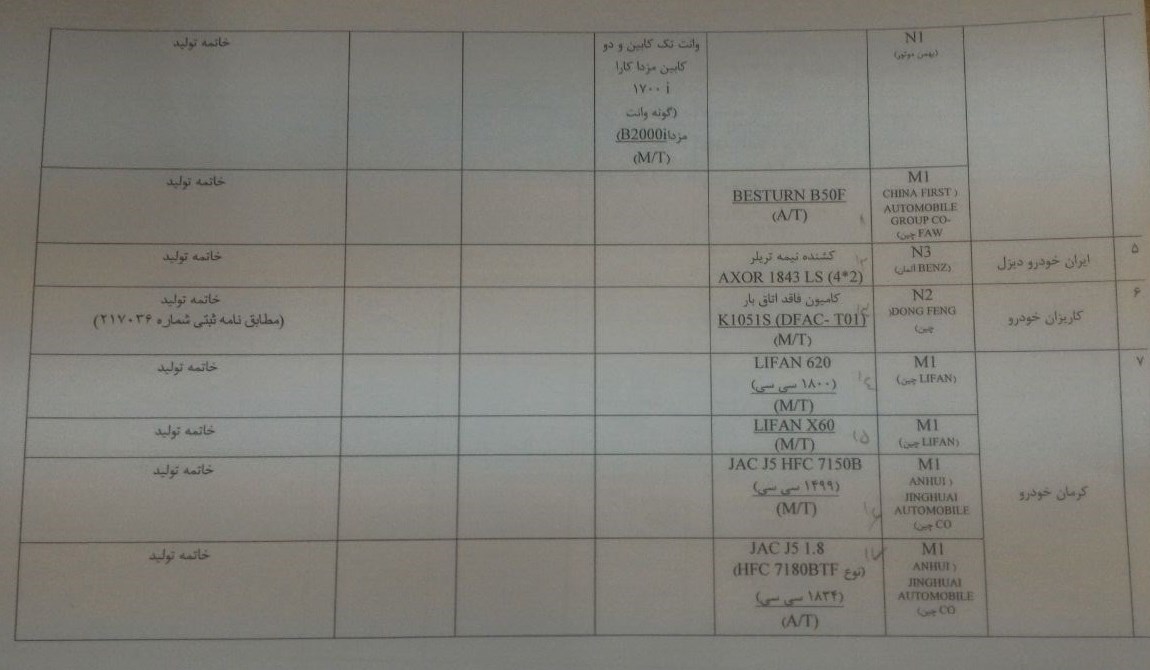 N1
(بهمن موتور)
وانت تک کابین و دو
کابین مزدا کارا
۱۷۰۰ i
(گونه وانت
مزداB2000i)
(M/T)
خاتمه تولید
M1
CHINA FIRST )
AUTOMOBILE
GROUP CO-
FAW چین)
BESTURN B50F
(A/T)
خاتمه تولید
۵
ایران خودرو دیزل
N3
(BENZ آلمان)
کشنده نیمه تریلر
AXOR 1843 LS (4*2)
خاتمه تولید
۶
کاریزان خودرو
N2
DONG FENG)
چین)
کامیون فاقد اتاق بار
K1051S (DFAC- T01)
(M/T)
خاتمه تولید
(مطابق نامه ثبتی شماره ۲۱۷۰۳۶)
۷
کرمان خودرو
M1
(LIFAN چین)
LIFAN 620
(۱۸۰۰ سی سی)
(M/T)
۱۴
خاتمه تولید
M1
(LIFAN چین)
LIFAN X60
(M/T)
۱۵
خاتمه تولید
M1
ANHUI )
JINGHUAI
AUTOMOBILE
CO چین)
JAC J5 HFC 7150B
(۱۴۹۹ سی سی)
(M/T)
۱۶
خاتمه تولید
M1
ANHUI )
JINGHUAI
AUTOMOBILE
CO چین)
JAC J5 1.8
(نوع HFC 7180BTF)
(۱۸۳۴ سی سی)
(A/T)
۱۷
خاتمه تولید